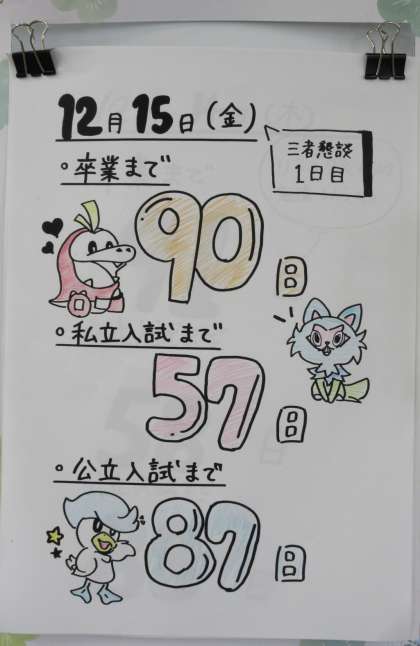 12月15日(金)
三者懇談
1日目
○卒業まで
90日
○私立入試まで
57日
○公立入試まで
87日